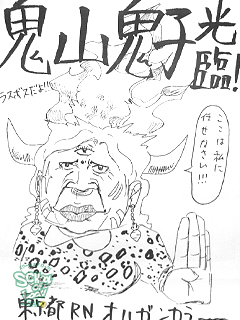 鬼山鬼子光臨!
ラスボスだよ!!
ここは私に
任せなさい!!!
東京都 RN オルガンカラー